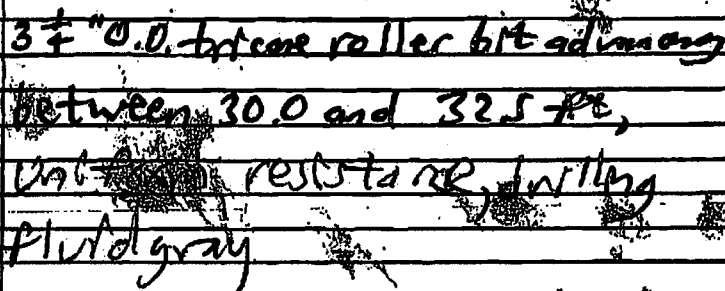 3 1/4 "O.D. tricone roller bit advancing
between 30.0 and 32.5 ft,
uniform resistance, drilling
fluid gray